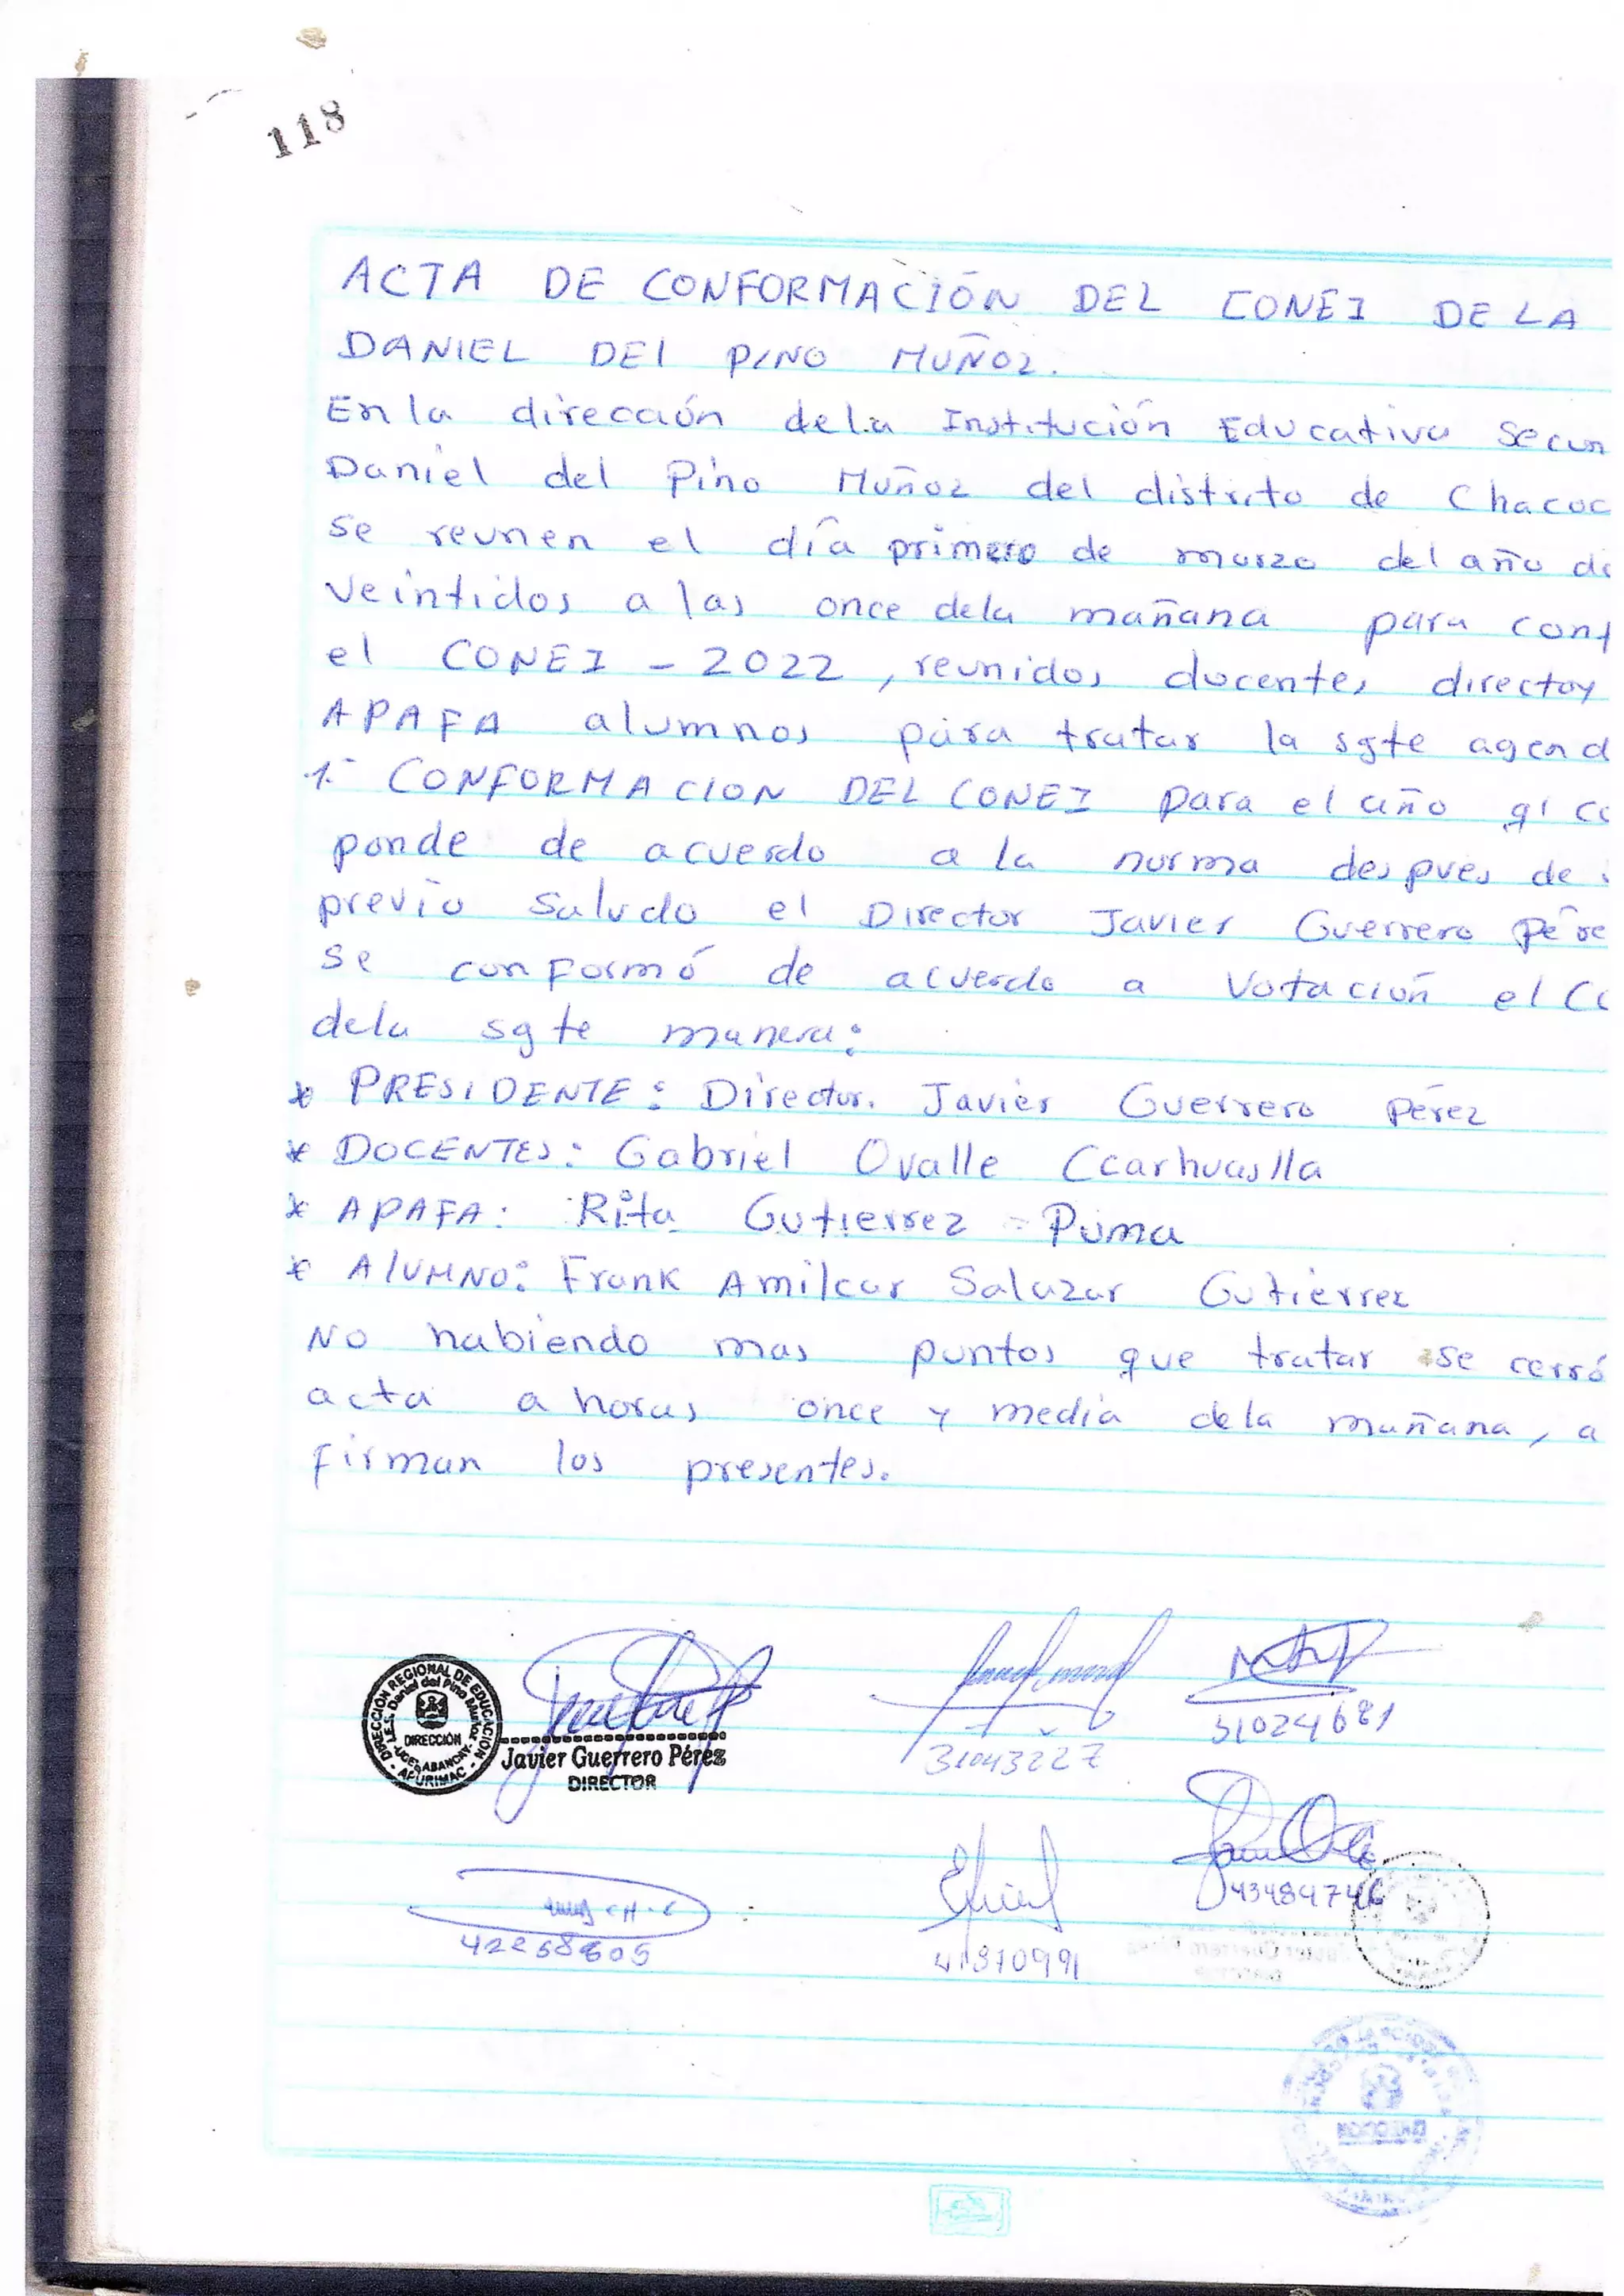 118
ACTA DE CONFORMACIÓN DEL CONEI DE LA
DANIEL DEl PINO MUÑOZ.
En la dirección dela Institución Educativa Secun
Daniel del Pino Muñoz del distrito de Chacoc
se reunen el día primero de marzo del año do
veintidos a las once dela mañana para conf
el CONEI - 2022, reunidos docentes director
APAFA alumnos para tratar la sgte agend
1.- CONFORMACION DEL CONEI para el año q' co
ponde de acuerdo a la norma despues de
previo saludo el Director Javier Guerrero Pére
se conformó de acuerdo a Votación el CO
dela sgte manera:
* PRESIDENTE: Director. Javier Guerrero Pérez
* DOCENTES: Gabriel Ovalle Ccarhuaslla
* APAFA: Rita Gutierrez Puma
* AlUMNO: Frank Amilcar Salazar Gutierrez
No habiendo mas puntos que tratar se cerró
acta a horas once y media dela mañana, a
firman los presentes.
DIRECCIÓN REGIONAL DE EDUCACIÓN
I.E.S. Daniel del Pino Muñoz
DIRECCIÓN
UGEL ABANCAY
- APURIMAC -
Javier Guerrero Pérez
DIRECTOR
31043227
31024681
43484746
41810991